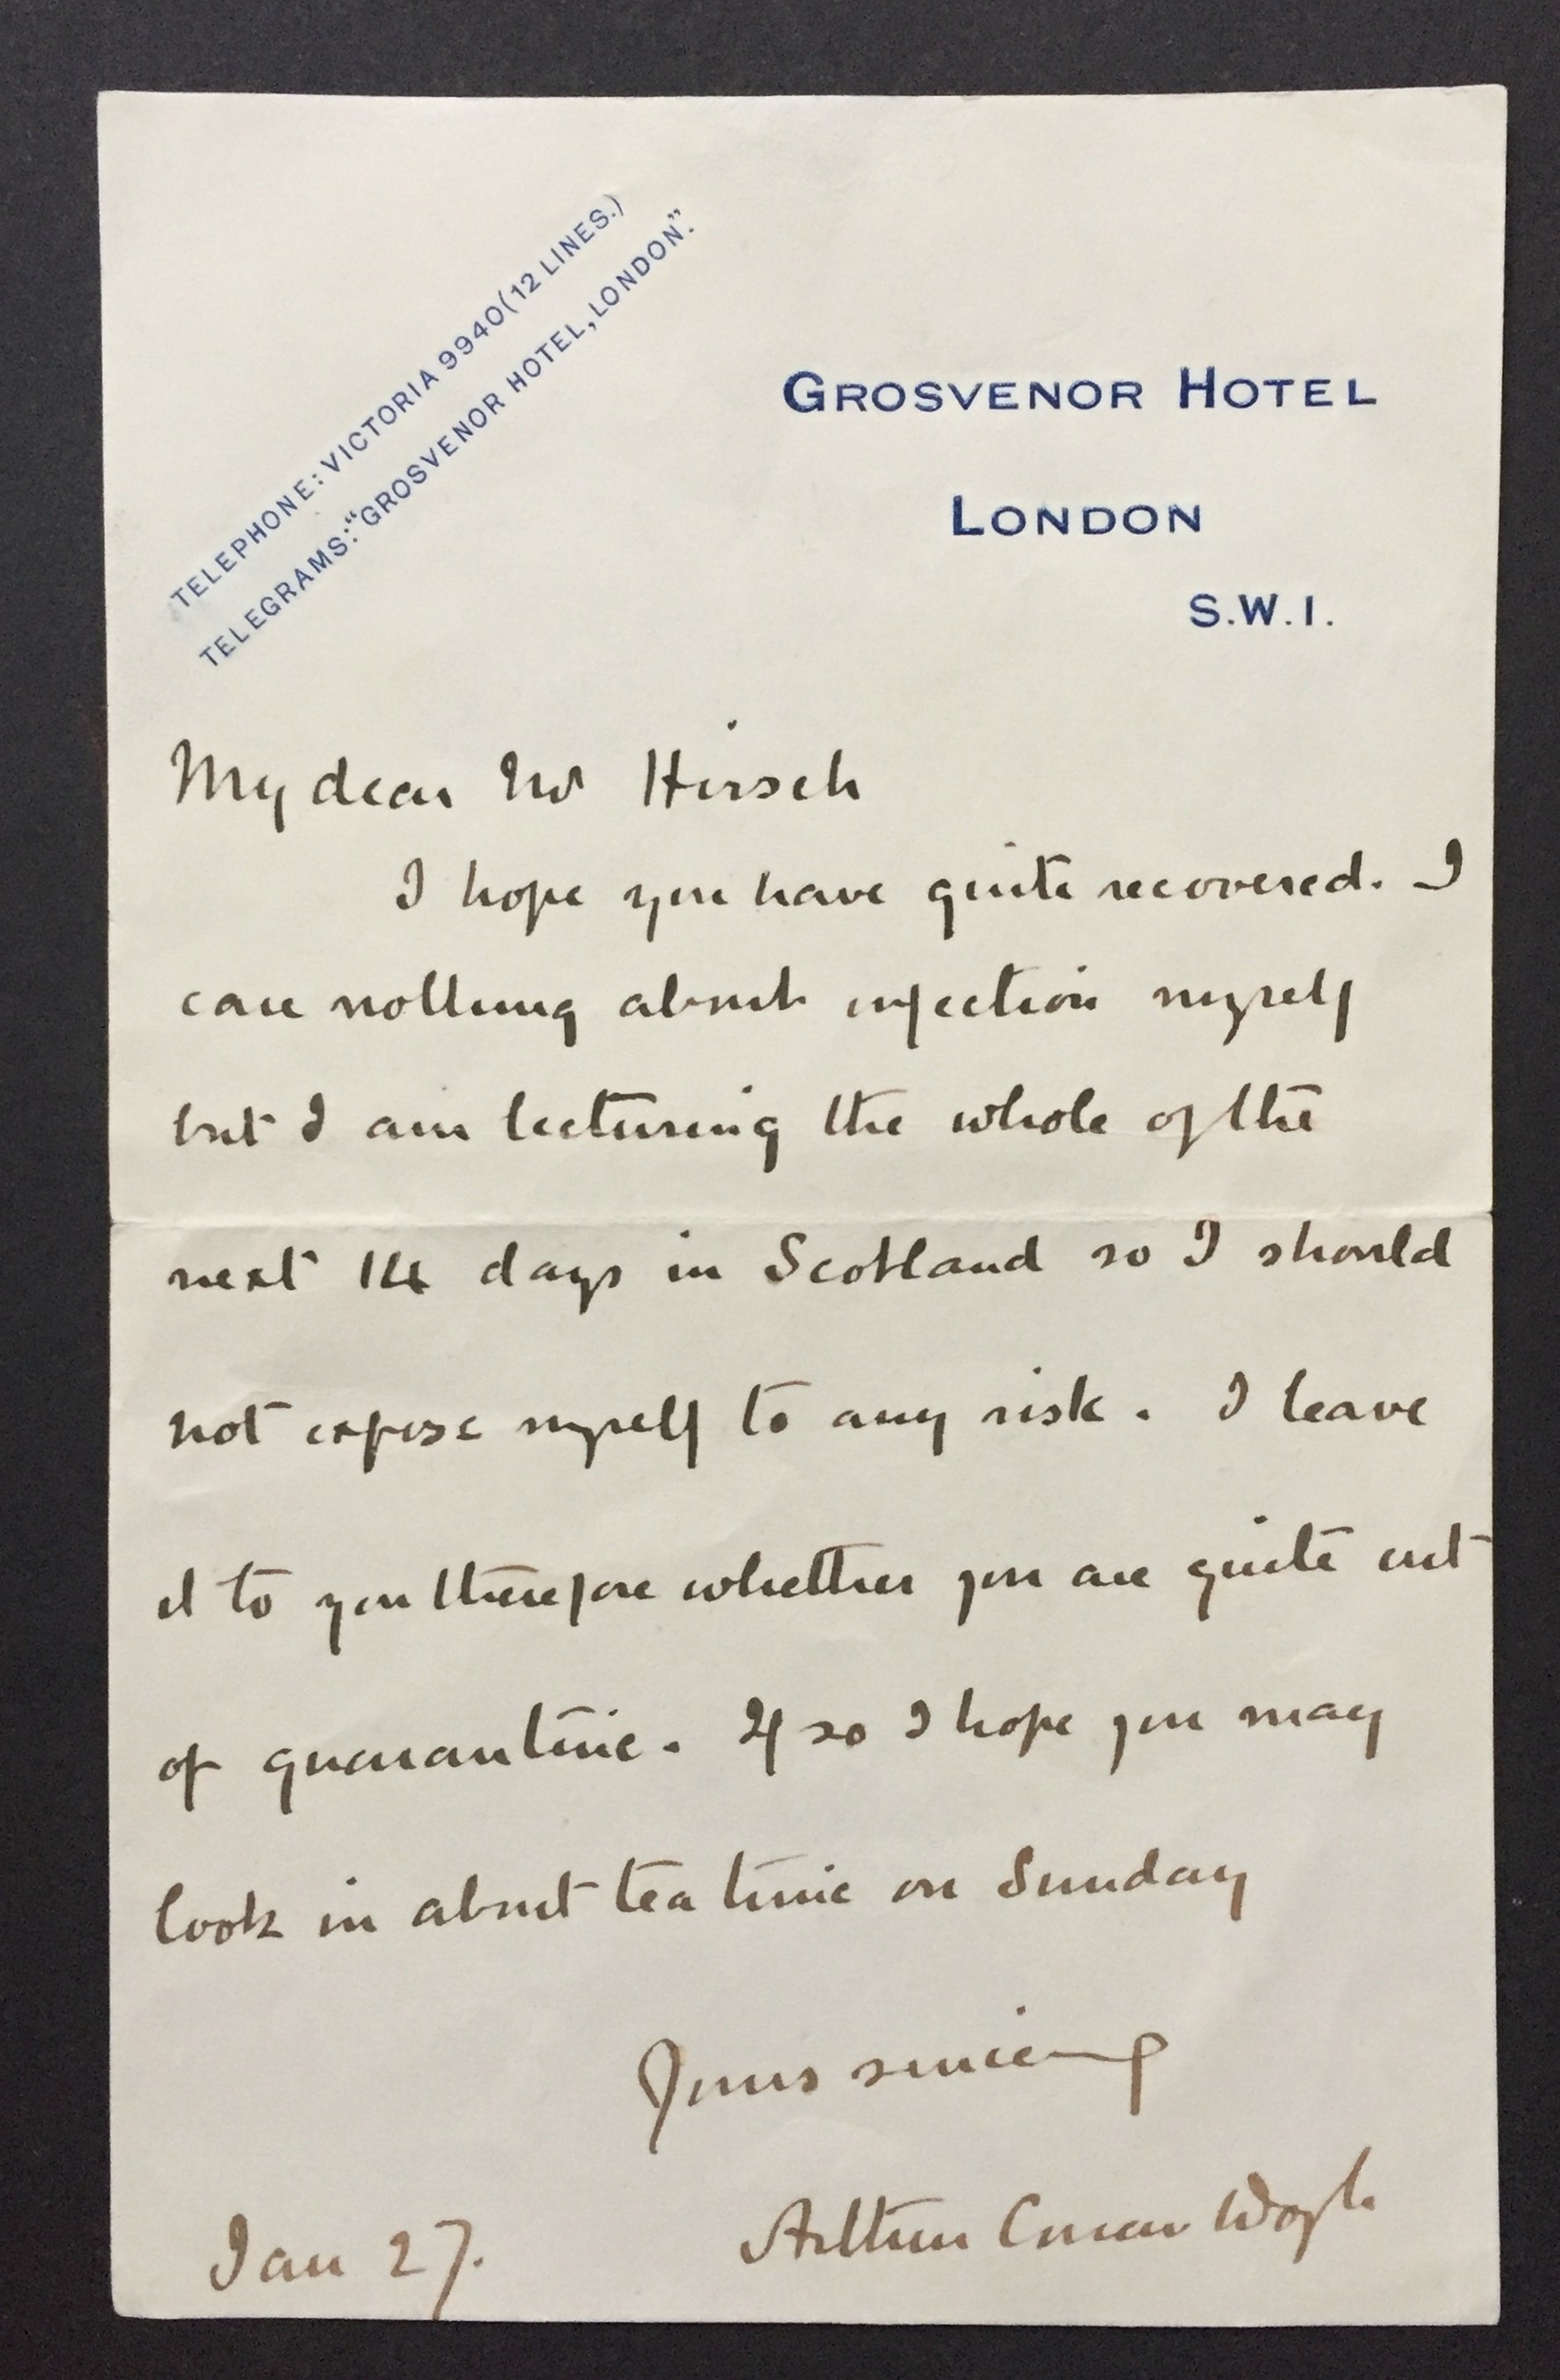 TELEPHONE: VICTORIA 9940 (12 LINES.)
TELEGRAMS: "GROSVENOR HOTEL, LONDON."
GROSVENOR HOTEL
LONDON
S.W.1.
My dear Mr Hirsch
I hope you have quite recovered. I
care nothing about infection myself
but I am lecturing the whole of the
next 14 days in Scotland so I should
not expose myself to any risk. I leave
it to you therefore whether you are quite out
of quarantine. If so I hope you may
look in about tea time on Sunday
Yours sincerely
Arthur Conan Doyle
Jan 27.